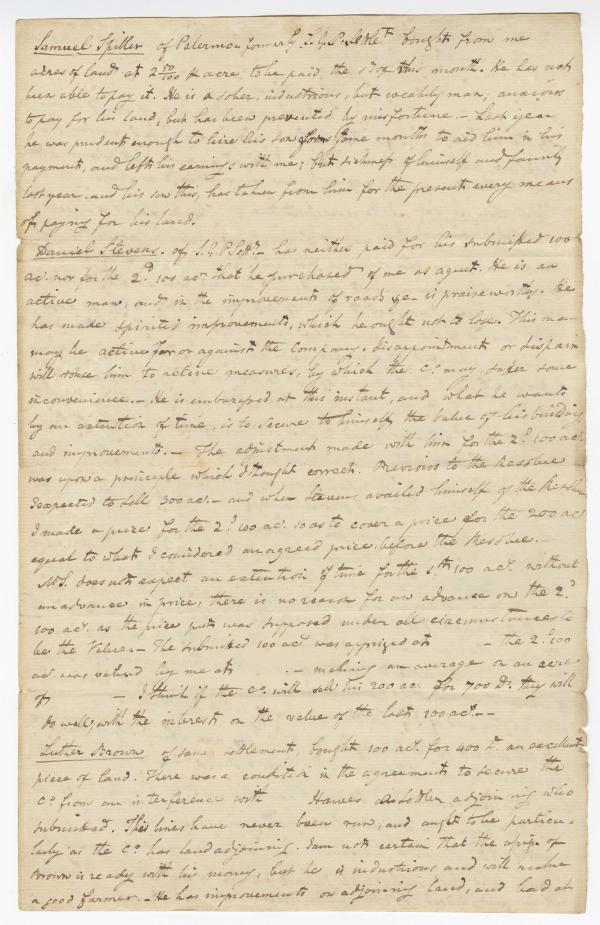 Samuel Spiller of Palermo formerly S.G.P. Settlt bought from me
acres of land at 2 50/100 acre, to be paid, the of this month. He has not
been able to pay it. He is a sober, industrious, but weakly man, anxious
to pay for his land, but has been prevented by misfortune. – Last year
he was prudent enough to hire his son some months to aid him in his
payment, and left his earnings with me; but sickness of himself and family
last year, and his son this, has taken from him for the present every means
of paying for his land.
Daniel Stevens. of S.G.P. Settt. – has neither paid for his submitted 100
ac. nor for the 2d. 100 acs. that he purchased of me as agent. He is an
active man, and in the improvements of roads &c – is praise worthy. He
has made spirited improvements, which he ought not to lose. This man
may be active for or against the Company. disappointment or dispair
will rouse him to active measures, by which the Co. may suffer some
inconvenience. – He is embarassed at this instant, and what he wants
by an extention of time, is to secure to himself, the value of his buildings
and improvements. – The adjustment made with him for the 2d. 100 acs.
was upon a principle which I thought correct. Previous to the Resolve
I expected to sell 300 acs. – and when Stevens availed himself of the Resolve
I made a price for the 2d. 100 acs. so as to cover a price for the 200 acs.
equal to what I considered an agreed price, before the Resolve. –
Mr S. does not expect an extention of time for the 100 acs. without
an advance in price, there is no reason for an advance on the 2d.
100 acs. as the price put was supposed under all circumstances to
be the Value. – The submitted 100 acs. was apprized at – the 2d. 100
acs. was valued by me at . – making an average on an acre
of – I think if the Co. will sell his 200 acs. for 700 Ds. they will
do well, with the interest on the value of the last 100 acs. –
Luther Brown of same settlement, bought 100 acs. for 400 Ds. an excellent
piece of land. There was a condition in the agreement to secure the
Co. from an interference with Hawes a settler adjoining who
submitted. This lines have never been run, and ought to be particu-
larly as the Co. has land adjoining. I am not certain that the
Brown is ready with his money, but he is industrious and will make
a good farmer. – He has improvements on adjoining land, and had at